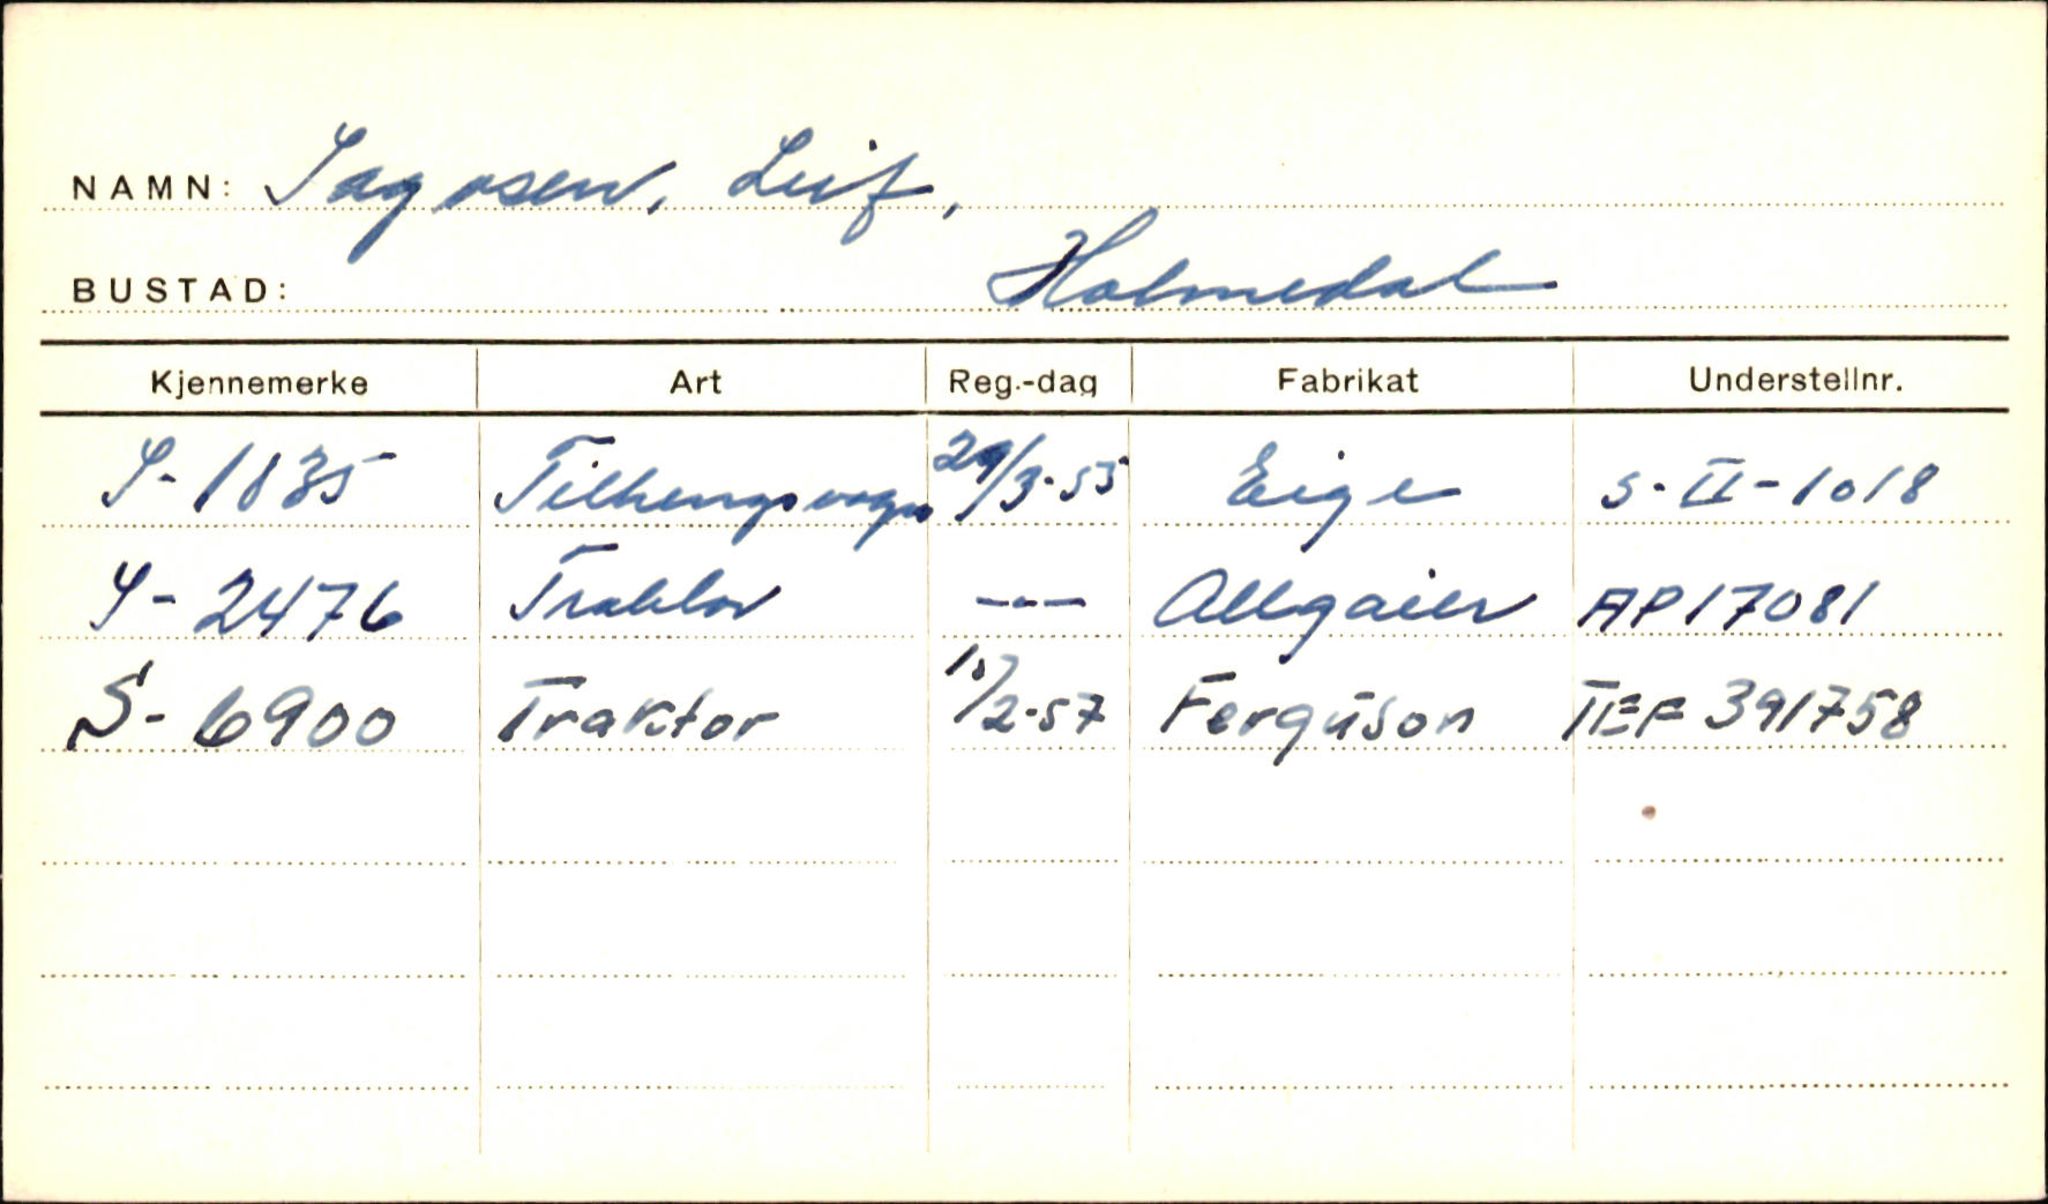 NAMN: Sagosen, Leif,
BUSTAD: Holmedal
Kjennemerke Art Reg.-dag Fabrikat Understellnr.
S-1835 Tilhengsvogn 29/3-55 Eige S-II-1018
S-2476 Traktor -"- Allgaier AP17081
S-6900 Traktor 10/2-57 Ferguson TEF391758